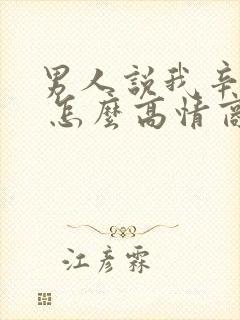 男人說我辛
怎麼高情商
江彥霖